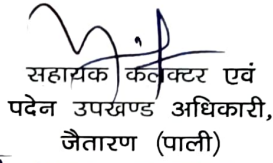 सहायक कलेक्टर एवं
पदेन उपखण्ड अधिकारी,
जैतारण (पाली)